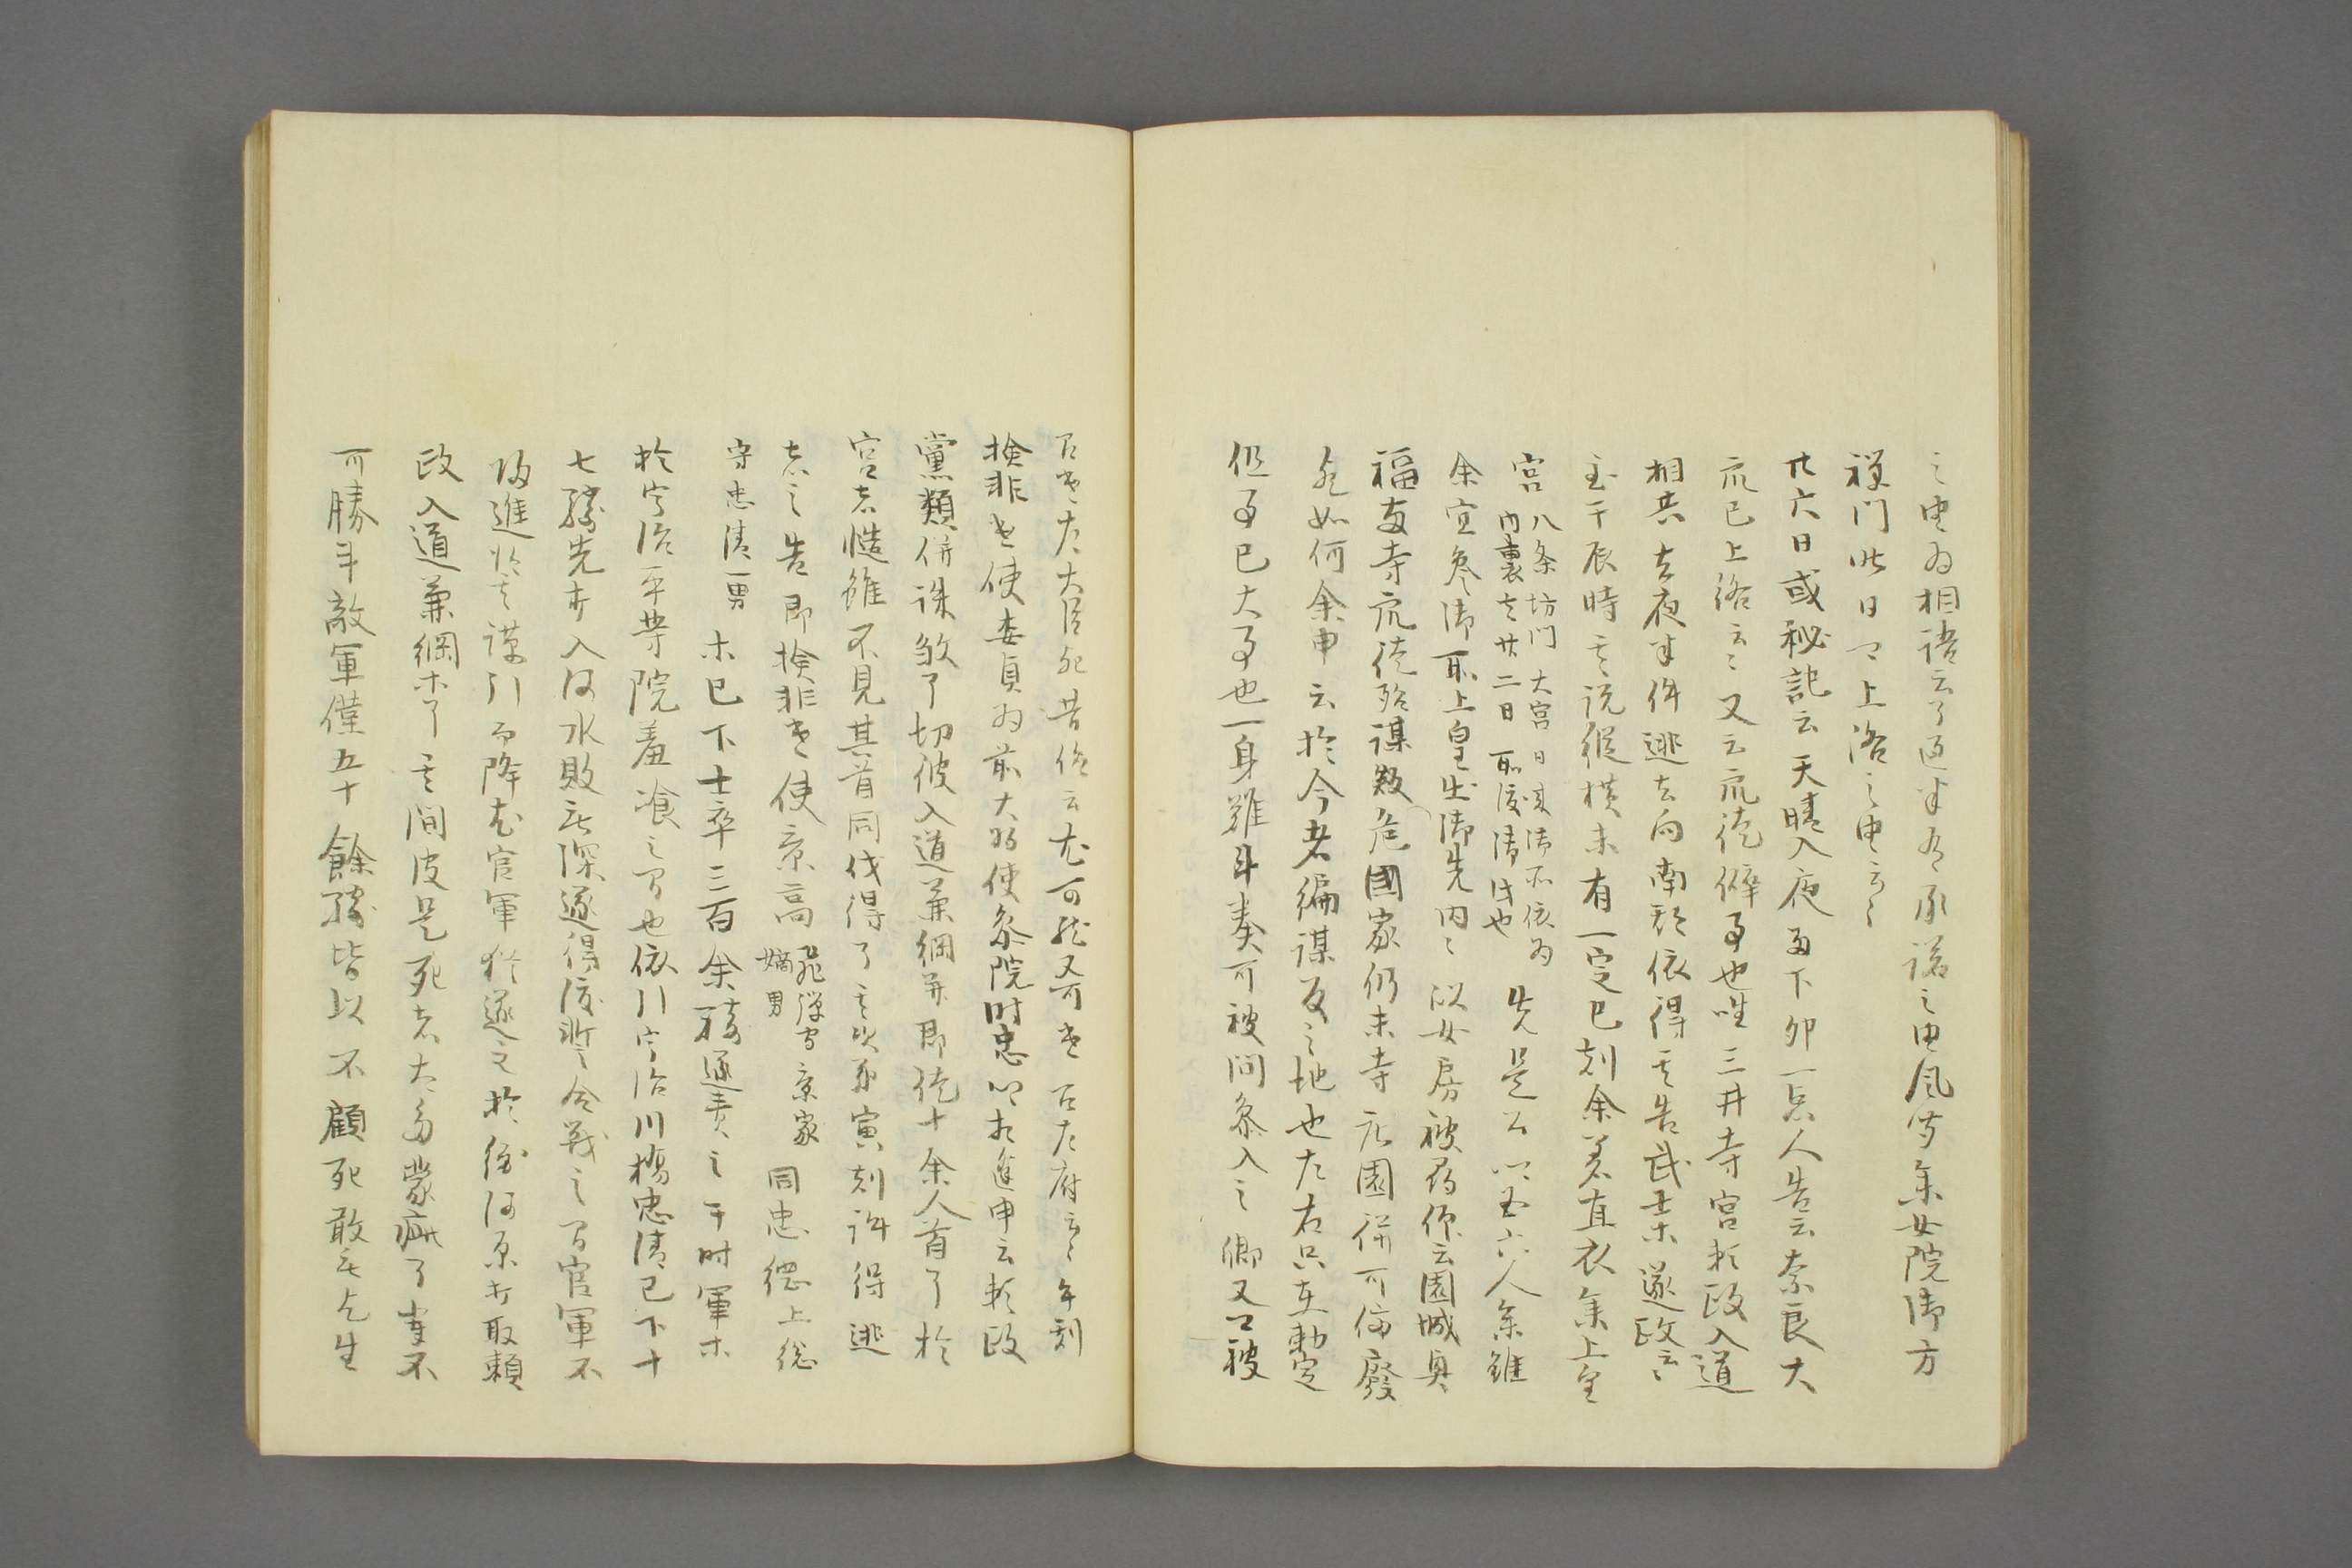 之由為相語云了過半有承諾之由風聞余女院御方
禅門此日可上洛之由云々
廿六日或秘記云天晴入夜雨下卯一点人告云奈良大
衆已上洛云々又云衆徒僻事也唯三井寺宮頼政入道
相共去夜半件逃去向南都依得其告武士等遂政云々
至于辰時其説縦横未有一定巳刻余着直衣参上皇
宮
八条坊門大宮日来御所依為
内裏去廿二日所渡御此也
先是公卿五六人参雖
余宜参御所上皇出御先内々以女房被尋仰云園城興
福両寺衆徒殆謀叛危國家仍末寺庄園併可停廃
也如何余申云於今者編謀反之地也左右只在勅定
但事已大事也一身難計奏可被問参入之卿又可被
召遣左大臣也昔仰云尤可然又可遣召左府云々午刻
検非遣使季貞為前大将使参院時忠卿相逢申云頼政
黨類併誅殺了切彼入道兼綱并郎従十余人首了於
宮者慥雖不見其首同伐得了其次第寅刻許得逃
去之告即検非遣使景高
飛騨守景家
嫡男
同忠綱上総
守忠清一男
等已下士卒三百余騎遂責之于時軍等
於宇治平等院羞飡之間也依引宇治川橋忠清已下十
七騎先打入河水敗無深遂得渡暫合戦之間官軍不
得進於其謀引而降尤官軍猶遂之於彼河原打取頼
政入道兼綱等了其間彼是死者太多蒙疵了輩不
可勝計敵軍僅五十餘騎皆以不顧死敢無乞生